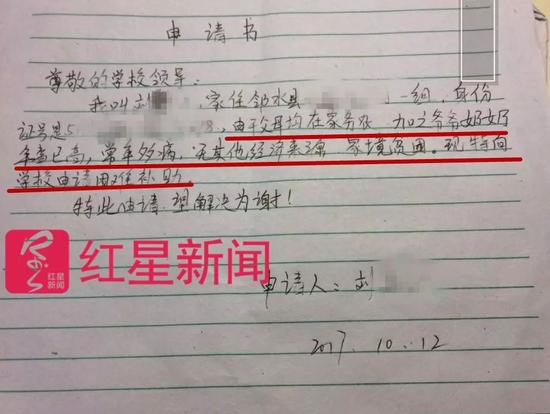 申请书
尊敬的学校领导:
我叫刘 ,家住邻水县 一组,身份
证号是5 8,由于父母均在家务农 加之爷爷奶奶
年岁已高,常年多病,无其他经济来源 家境贫困。现特向
学校申请困难补助。
特此申请,望解决为谢!
红星新闻
红星
新闻
申请人:刘
2017.10.12